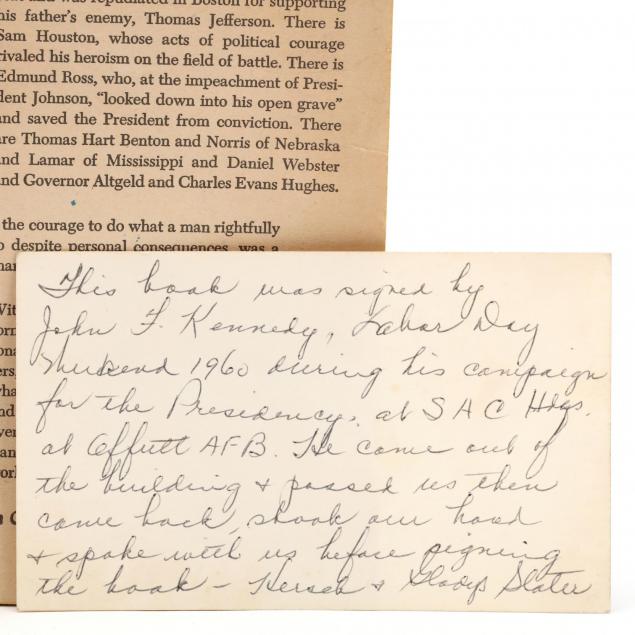 and was repudiated in Boston for supporting
his father's enemy, Thomas Jefferson. There is
Sam Houston, whose acts of political courage
rivaled his heroism on the field of battle. There is
Edmund Ross, who, at the impeachment of Presi-
dent Johnson, "looked down into his open grave"
and saved the President from conviction. There
are Thomas Hart Benton and Norris of Nebraska
and Lamar of Mississippi and Daniel Webster
and Governor Altgeld and Charles Evans Hughes.
the courage to do what a man rightfully
despite personal consequences, was a
This book was signed by
John F. Kennedy, Labor Day
Weekend 1960 during his campaign
for the Presidency, at SAC Hdqs.
at Offutt AFB. He came out of
the building & passed us then
came back, shook our hand
& spoke with us before signing
the book - Hersch & Gladys Slater